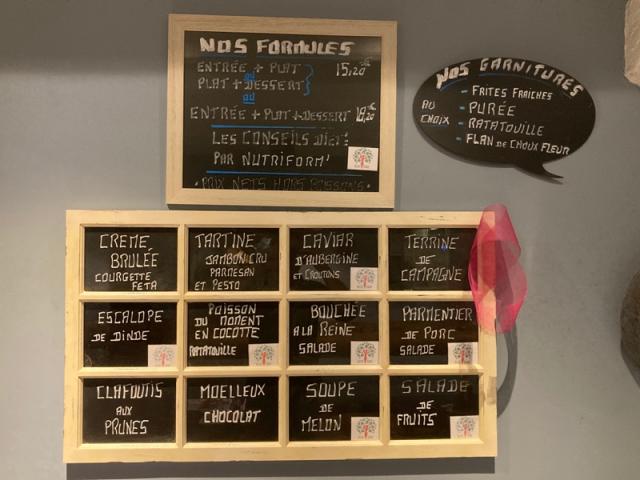 NOS FORMULES
ENTRÉE + PLAT
ou
PLAT + DESSERT
15,20€
ou
ENTRÉE + PLAT + DESSERT 18,20€
LES CONSEILS DIET:
PAR NUTRIFORM'
• PRIX NETS HORS BOISSONS •
NOS GARNITURES
AU
CHOIX
- FRITES FRAICHES
- PURÉE
- RATATOUILLE
- FLAN DE CHOUX FLEUR
CREME
BRULÉE
COURGETTE
FETA
TARTINE
JAMBON CRU
PARMESAN
ET PESTO
CAVIAR
D'AUBERGINE
ET CROUTONS
TERRINE
DE
CAMPAGNE
ESCALOPE
DE DINDE
POISSON
DU MOMENT
EN COCOTTE
RATATOUILLE
BOUCHÉE
A LA REINE
SALADE
PARMENTIER
DE PORC
SALADE
CLAFOUTIS
AUX
PRUNES
MOELLEUX
CHOCOLAT
SOUPE
DE
MELON
SALADE
DE
FRUITS